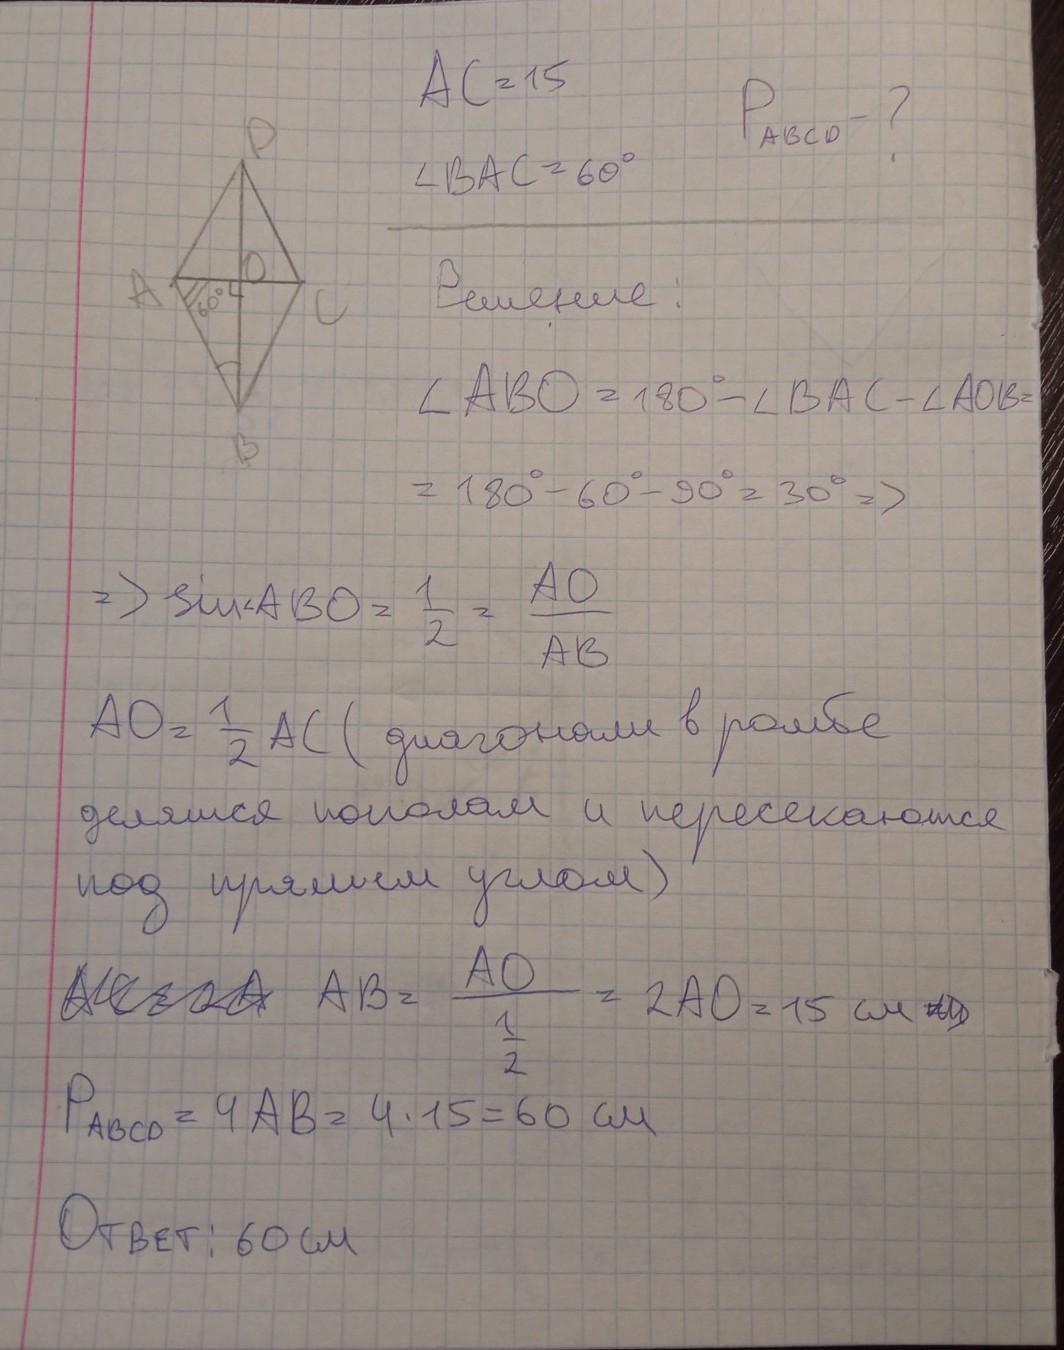 AC=15
P ABCD - ?
∠BAC=60°
D
O
A
60°
C
B
Решение:
∠ABO=180°-∠BAC-∠AOB=
=180°-60°-90°=30°=>
=> sin∠ABO= 1/2 = AO/AB
AO= 1/2 AC ( диагонали в ромбе
делятся пополам и пересекаются
под прямым углом)
AB= AO/(1/2) = 2AO=15 см
P ABCD = 4AB= 4·15=60 см
Ответ: 60 см